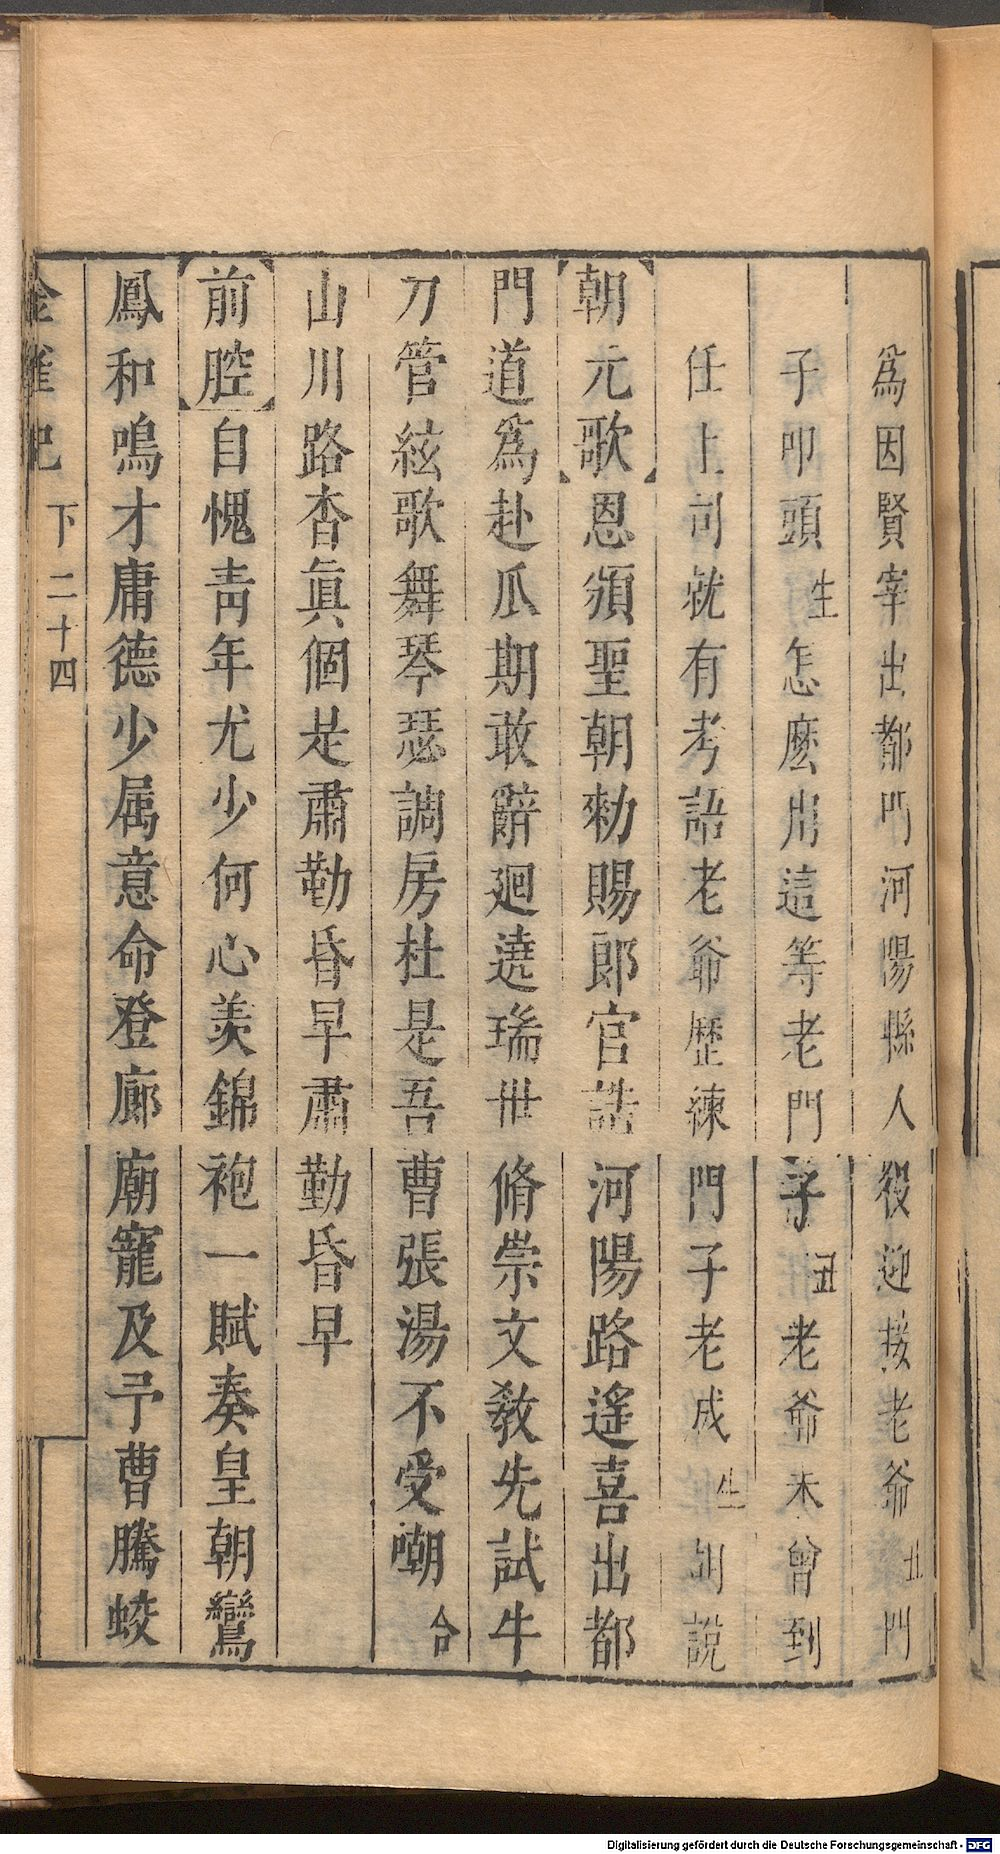 為因賢宰出都門河陽縣人役迎接老爺丑門
子叩頭生怎麽出這等老門子丑老爺未曾到
任上司就有考語老爺歷練門子老成生胡說
朝元歌恩頒聖朝勑賜郎官誥河陽路遙喜出都
門道爲赴瓜期敢辭迴遶瑞世脩崇文教先試牛
刀管絃歌舞琴瑟調房杜是吾曹張湯不受嘲合
山川路杳眞個是肅勤昏早肅勤昏早
前腔自愧靑年尤少何心羡錦袍一賦奏皇朝鸞
鳳和鳴才庸德少属意命登廊廟寵及予曹騰蛟
金雀記 下 二十四
Digitalisierung gefördert durch die Deutsche Forschungsgemeinschaft - DFG